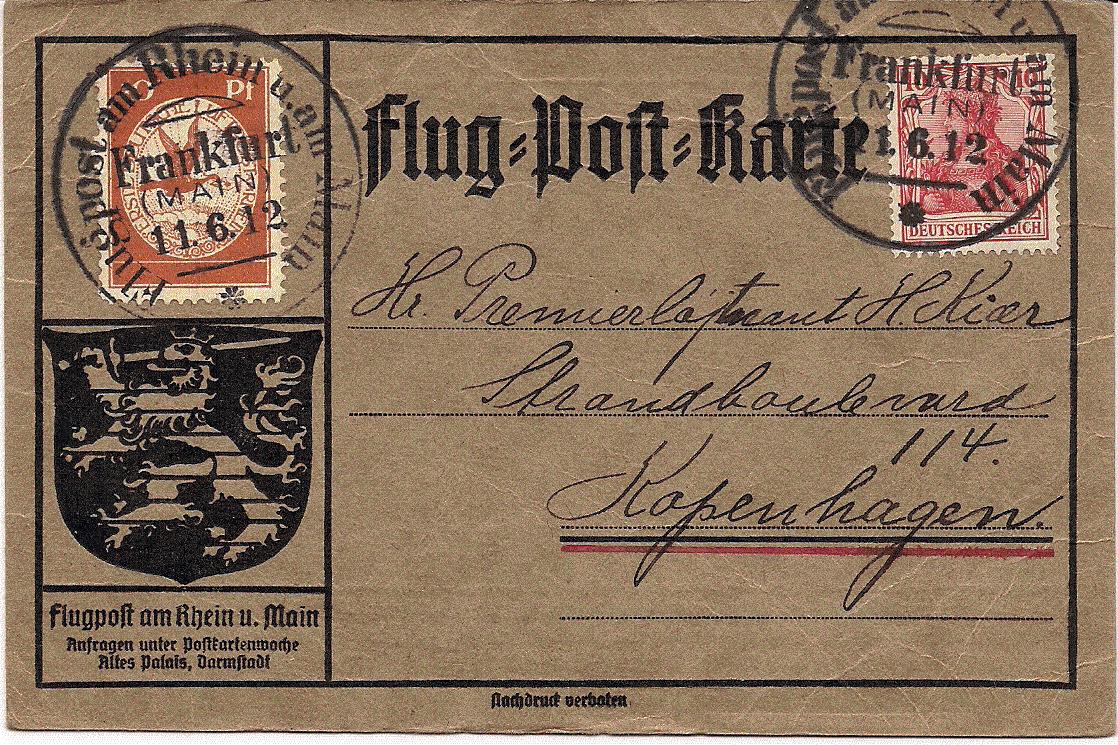 Flugpost am Rhein u. am Main
Frankfurt
(MAIN)
11.6.12
Pf
Flug=Post=Karte
Flugpost am Rhein u. am Main
Frankfurt
(MAIN)
11.6.12
10 10
DEUTSCHES REICH
Hr. Premierløjtnant H. Kiær
Strandboulevard
114.
Kopenhagen.
Flugpost am Rhein u. Main
Anfragen unter Postkartenwoche
Altes Palais, Darmstadt
Nachdruck verboten